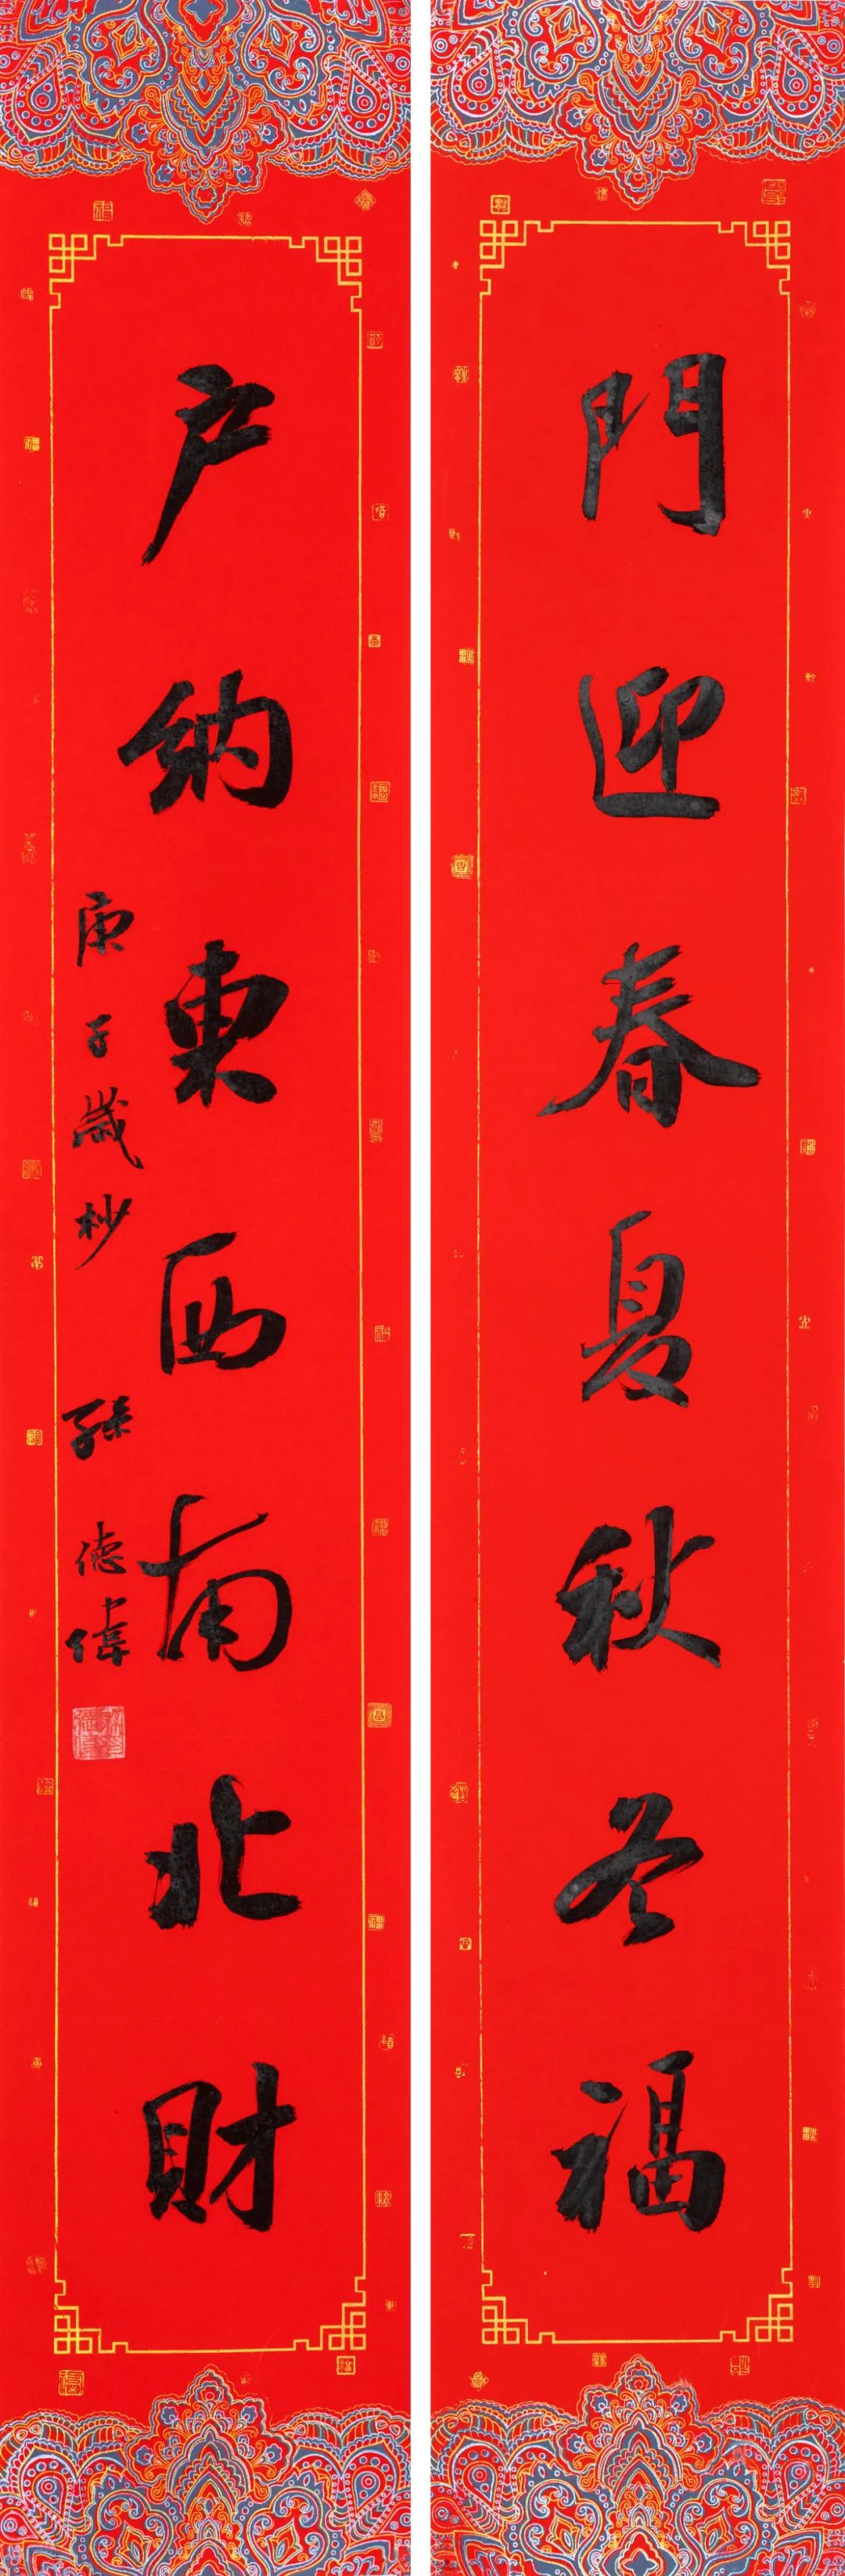 門迎春夏秋冬福
户納東西南北財
庚子歲杪 孫德偉